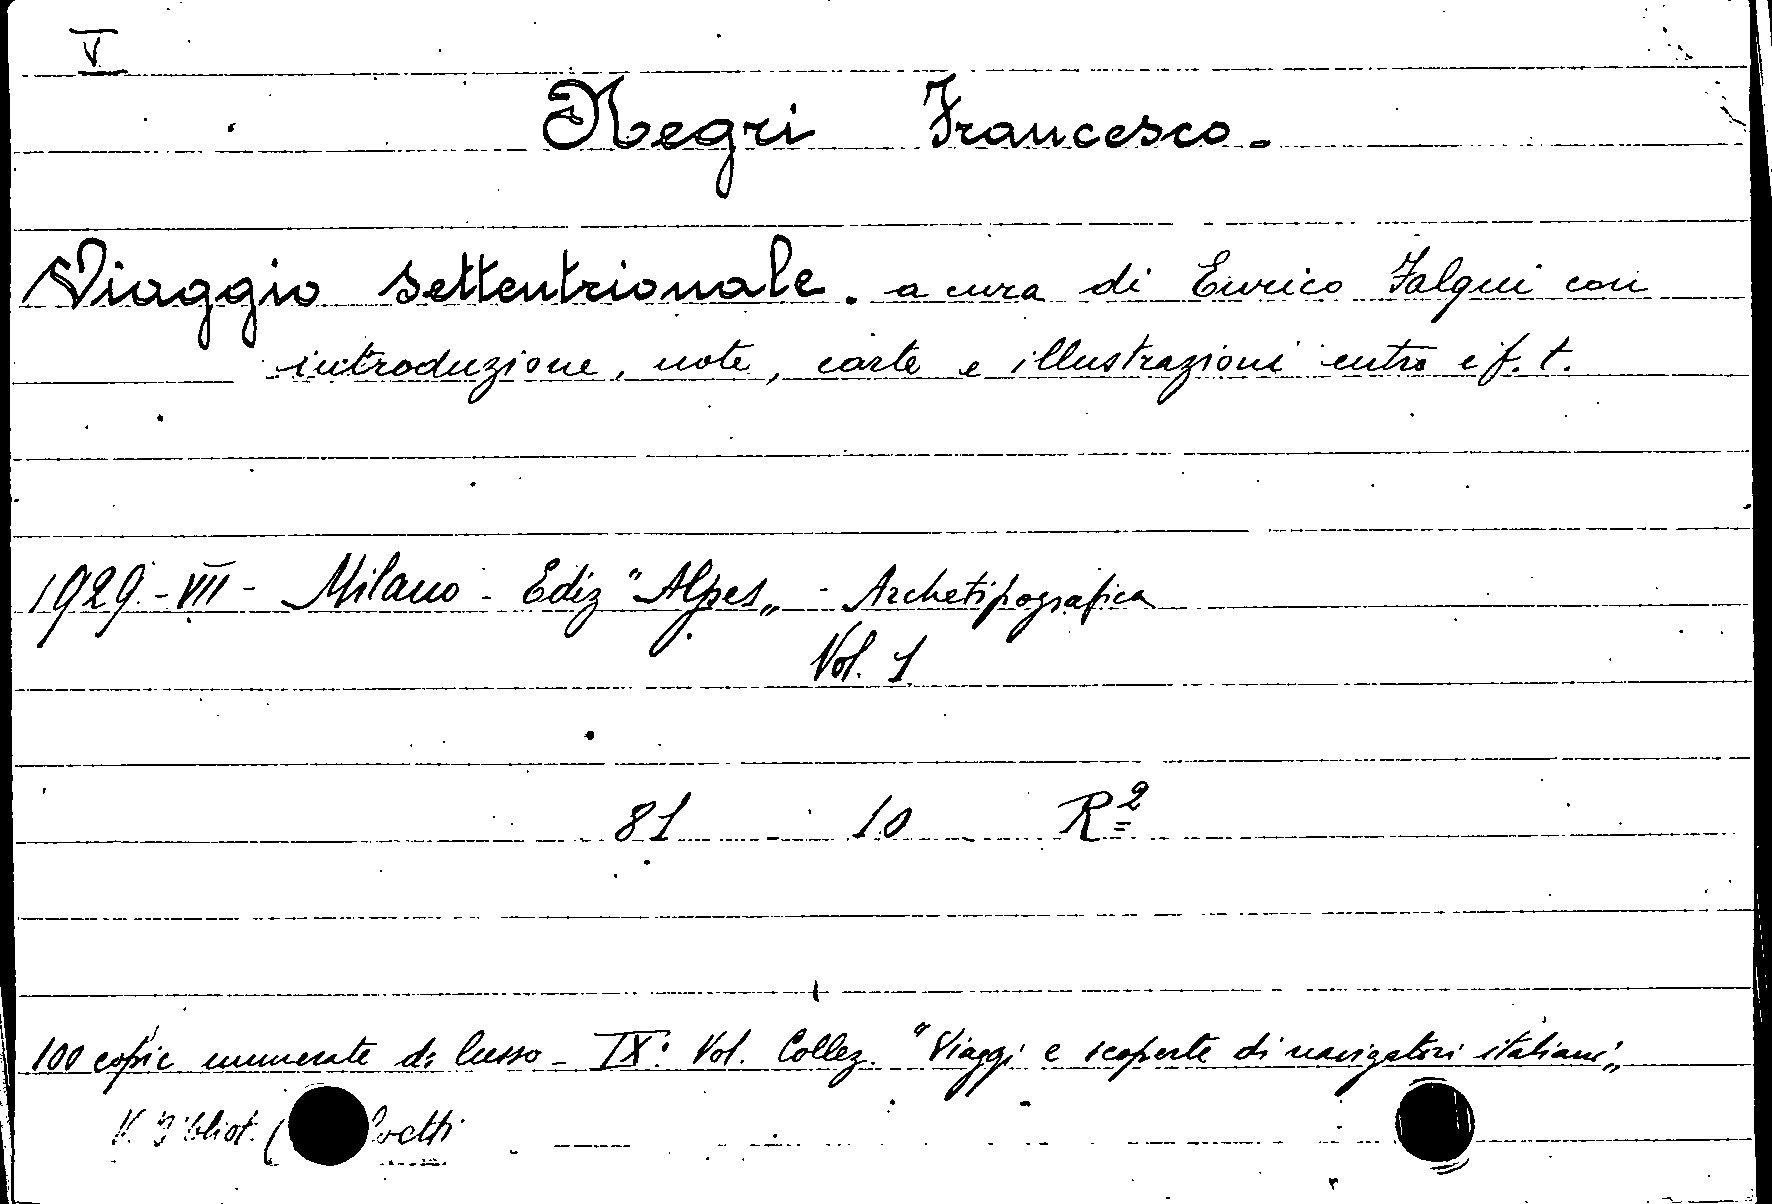 V
Negri Francesco.
Viaggio settentrionale. a cura di Enrico Falqui con
introduzione, note, carte e illustrazioni entro e f. t.
1929 - VII - Milano - Ediz "Alpes„ - Archetipografica
Vol. 1
81 10 R²
100 copie numerate di lusso - IX: Vol. Collez. "Viaggi e scoperte di navigatori italiani„
V. Bibliot.